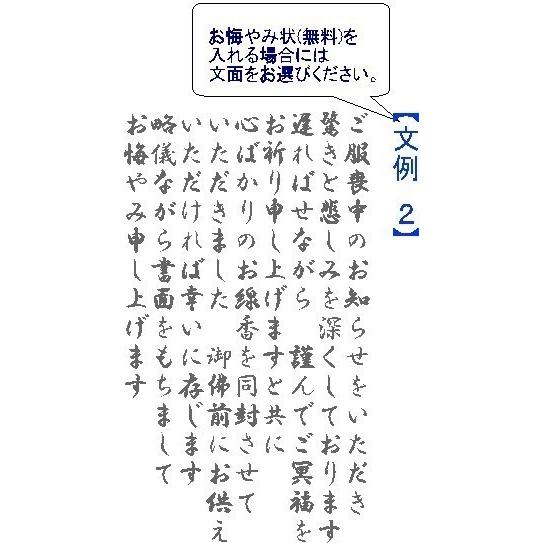 お悔やみ状(無料)を
入れる場合には
文面をお選びください。
【文例 2】
ご服喪中のお知らせをいただき
驚きと悲しみを深くしております
遅ればせながら 謹んでご冥福を
お祈り申し上げますと共に
心ばかりのお線香を同封させて
いただきました 御佛前にお供え
いただければ幸いに存じます
略儀ながら書面をもちまして
お悔やみ申し上げます